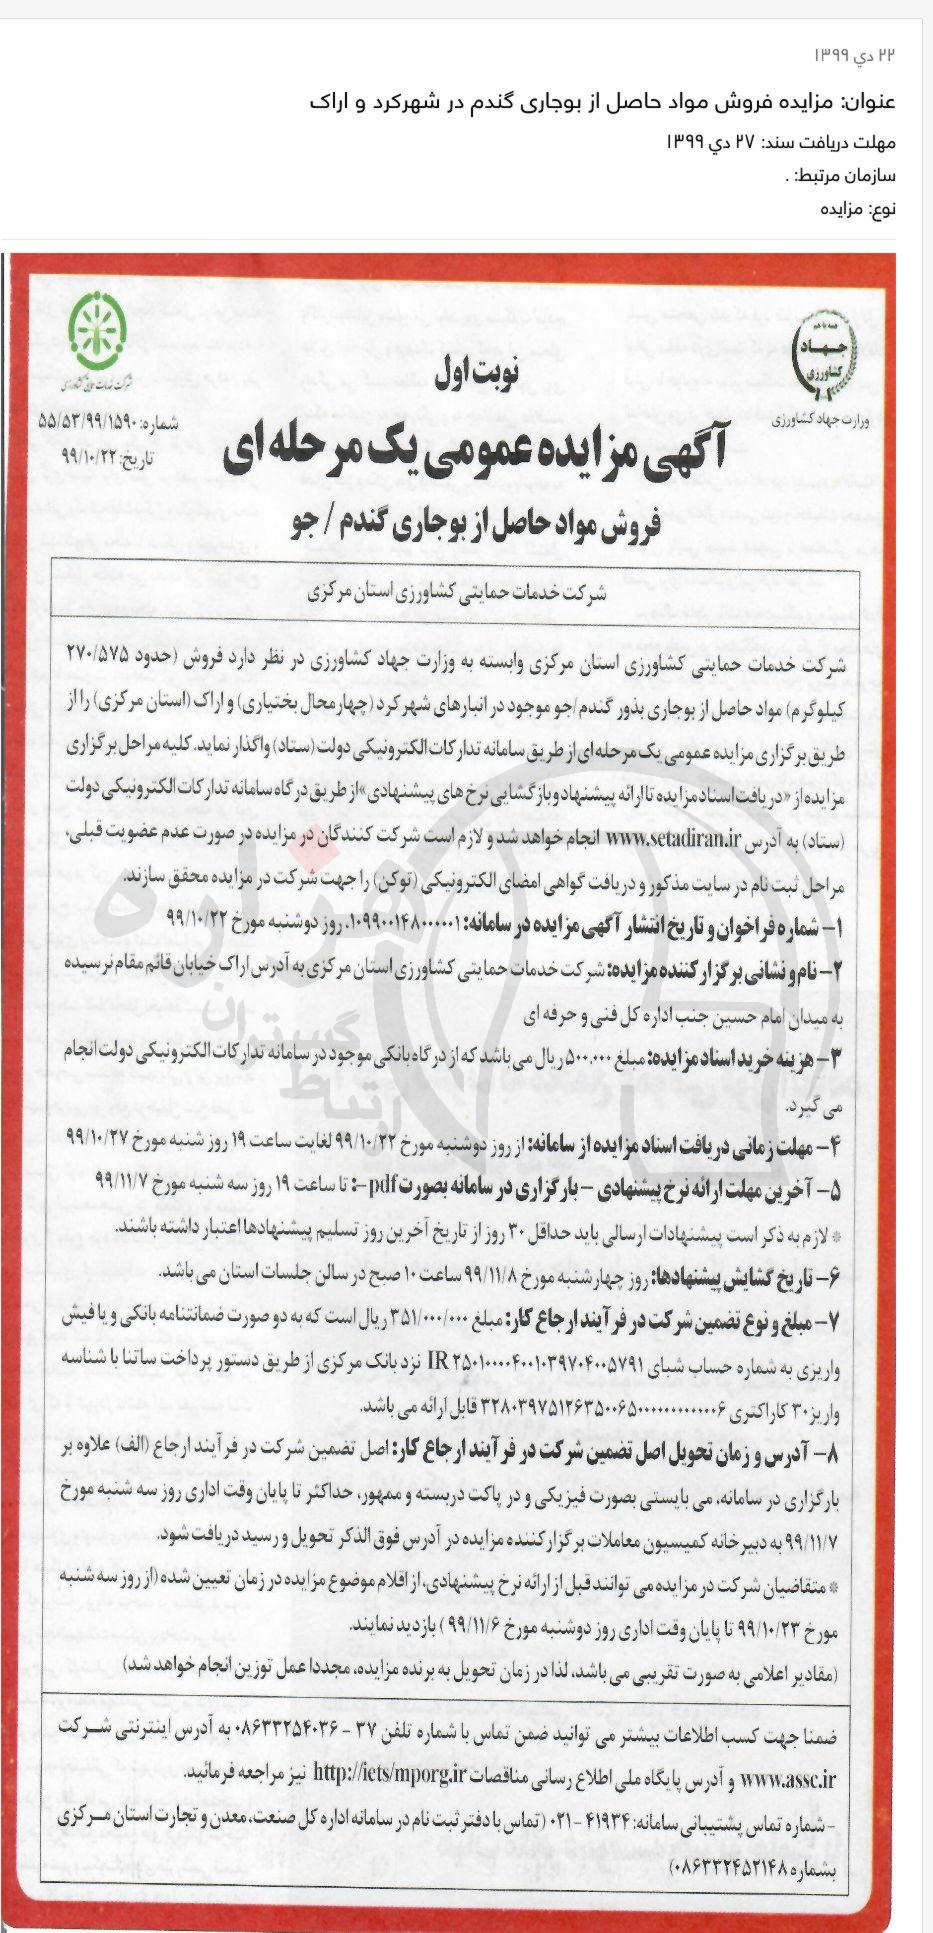 ۲۲ دي ۱۳۹۹
عنوان: مزایده فروش مواد حاصل از بوجاری گندم در شهرکرد و اراک
مهلت دریافت سند: ۲۷ دي ۱۳۹۹
سازمان مرتبط: .
نوع: مزایده
جهاد
کشاورزی
وزارت جهاد کشاورزی
شرکت خدمات حمایتی کشاورزی
نوبت اول
شماره: ۵۵/۵۳/۹۹/۱۵۹۰
تاریخ: ۹۹/۱۰/۲۲
آگهی مزایده عمومی یک مرحله ای
فروش مواد حاصل از بوجاری گندم / جو
شرکت خدمات حمایتی کشاورزی استان مرکزی
شرکت خدمات حمایتی کشاورزی استان مرکزی وابسته به وزارت جهاد کشاورزی در نظر دارد فروش (حدود ۲۷۰/۵۷۵
کیلوگرم) مواد حاصل از بوجاری بذور گندم /جو موجود در انبارهای شهر کرد (چهارمحال بختیاری) و اراک (استان مرکزی) را از
طریق برگزاری مزایده عمومی یک مرحله ای از طریق سامانه تدارکات الکترونیکی دولت (ستاد) واگذار نماید. کلیه مراحل برگزاری
مزایده از «دریافت اسناد مزایده تا ارائه پیشنهاد و بازگشایی نرخ های پیشنهادی» از طریق درگاه سامانه تدارکات الکترونیکی دولت
(ستاد) به آدرس www.setadiran.ir انجام خواهد شد و لازم است شرکت کنندگان در مزایده در صورت عدم عضویت قبلی،
مراحل ثبت نام در سایت مذکور و دریافت گواهی امضای الکترونیکی (توکن) را جهت شرکت در مزایده محقق سازند.
۱- شماره فراخوان و تاریخ انتشار آگهی مزایده در سامانه: ۱۰۹۹۰۰۱۴۸۰۰۰۰۰۱، روز دوشنبه مورخ ۹۹/۱۰/۲۲
۲- نام و نشانی برگزار کننده مزایده: شرکت خدمات حمایتی کشاورزی استان مرکزی به آدرس اراک خیابان قائم مقام نرسیده
به میدان امام حسین جنب اداره کل فنی و حرفه ای
۳- هزینه خرید اسناد مزایده: مبلغ ۵۰۰.۰۰۰ ریال می باشد که از درگاه بانکی موجود در سامانه تدارکات الکترونیکی دولت انجام
می گیرد.
۴- مهلت زمانی دریافت اسناد مزایده از سامانه: از روز دوشنبه مورخ ۹۹/۱۰/۲۲ لغایت ساعت ۱۹ روز شنبه مورخ ۹۹/۱۰/۲۷
۵- آخرین مهلت ارائه نرخ پیشنهادی - بارگزاری در سامانه بصورت pdf-: تا ساعت ۱۹ روز سه شنبه مورخ ۹۹/۱۱/۷
* لازم به ذکر است پیشنهادات ارسالی باید حداقل ۳۰ روز از تاریخ آخرین روز تسلیم پیشنهادها اعتبار داشته باشند.
۶- تاریخ گشایش پیشنهادها: روز چهارشنبه مورخ ۹۹/۱۱/۸ ساعت ۱۰ صبح در سالن جلسات استان می باشد.
۷- مبلغ و نوع تضمین شرکت در فرآیند ارجاع کار: مبلغ ۳۵۱/۰۰۰/۰۰۰ ریال است که به دو صورت ضمانتنامه بانکی و یا فیش
واریزی به شماره حساب شبای IR ۲۵۰۱۰۰۰۰۴۰۰۱۰۳۹۷۰۴۰۰۵۷۹۱ نزد بانک مرکزی از طریق دستور پرداخت ساتنا با شناسه
واریز ۳۰ کاراکتری ۳۲۸۰۳۹۷۵۱۲۶۳۵۰۰۶۵۰۰۰۰۰۰۰۰۰۰۰۰۶ قابل ارائه می باشد.
۸- آدرس و زمان تحویل اصل تضمین شرکت در فرآیند ارجاع کار: اصل تضمین شرکت در فرآیند ارجاع (الف) علاوه بر
بارگزاری در سامانه، می بایستی بصورت فیزیکی و در پاکت دربسته و ممهور، حداکثر تا پایان وقت اداری روز سه شنبه مورخ
۹۹/۱۱/۷ به دبیرخانه کمیسیون معاملات برگزار کننده مزایده در آدرس فوق الذکر تحویل و رسید دریافت شود.
* متقاضیان شرکت در مزایده می توانند قبل از ارائه نرخ پیشنهادی، از اقلام موضوع مزایده در زمان تعیین شده (از روز سه شنبه
مورخ ۹۹/۱۰/۲۳ تا پایان وقت اداری روز دوشنبه مورخ ۹۹/۱۱/۶ ) بازدید نمایند.
(مقادیر اعلامی به صورت تقریبی می باشد، لذا در زمان تحویل به برنده مزایده، مجددا عمل توزین انجام خواهد شد)
ضمنا جهت کسب اطلاعات بیشتر می توانید ضمن تماس با شماره تلفن ۳۷ - ۰۸۶۳۳۲۵۴۰۳۶ به آدرس اینترنتی شرکت
www.assc.ir و آدرس پایگاه ملی اطلاع رسانی مناقصات http://iets/mporg.ir نیز مراجعه فرمائید.
- شماره تماس پشتیبانی سامانه: ۴۱۹۳۴ - ۰۲۱ (تماس با دفتر ثبت نام در سامانه اداره کل صنعت، معدن و تجارت استان مرکزی
بشماره ۰۸۶۳۳۲۴۵۲۱۴۸)
هزاره
گستران
ارتباط